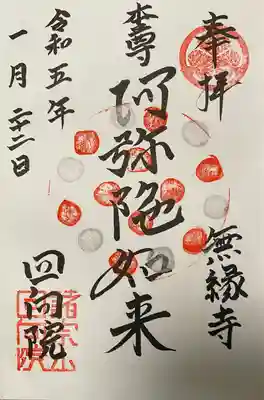 奉拝
無縁寺
本尊
阿弥陀如来
令和五年
一月二十二日
回向院